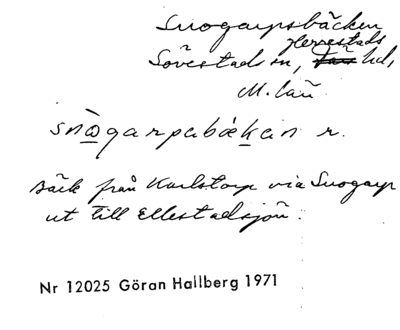 Snogarpsbäcken
Herrestads
Sövestads sn, hd,
M. län
snògarpsbäkən r.
Bäck från Karlstorp via Snogarp
ut till Ellestadsjön.
Nr 12025 Göran Hallberg 1971